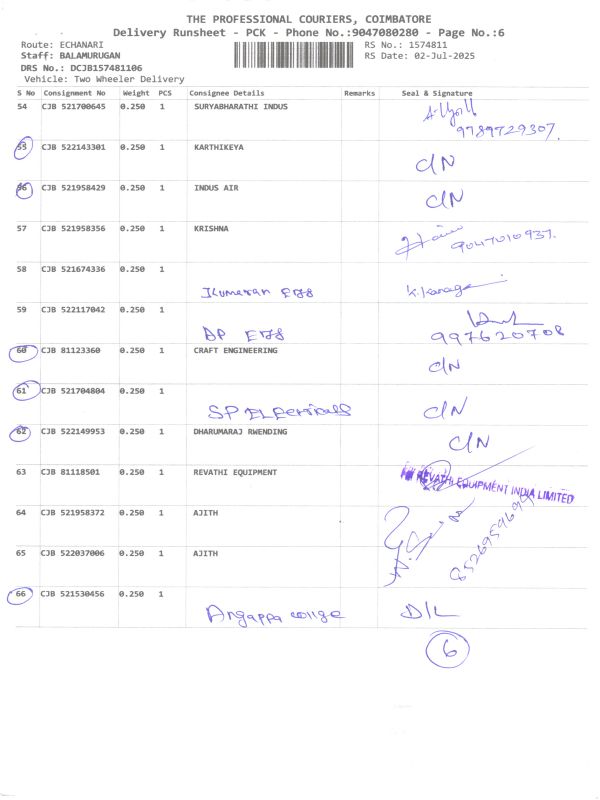 THE PROFESSIONAL COURIERS, COIMBATORE
Delivery Runsheet - PCK - Phone No.:9047080280 - Page No.:6
Route: ECHANARI RS No.: 1574811
Staff: BALAMURUGAN RS Date: 02-Jul-2025
DRS No.: DCJB157481106
Vehicle: Two Wheeler Delivery
S No Consignment No Weight PCS Consignee Details Remarks Seal & Signature
54 CJB 521700645 0.250 1 SURYABHARATHI INDUS
9789729307.
55 CJB 522143301 0.250 1 KARTHIKEYA
C/N
56 CJB 521958429 0.250 1 INDUS AIR
C/N
57 CJB 521958356 0.250 1 KRISHNA
9047010937.
58 CJB 521674336 0.250 1
Kumeran
59 CJB 522117042 0.250 1
AP
997620708
60 CJB 81123360 0.250 1 CRAFT ENGINEERING
C/N
61 CJB 521704804 0.250 1
SP C/N
62 CJB 522149953 0.250 1 DHARUMARAJ RWENDING
C/N
63 CJB 81118501 0.250 1 REVATHI EQUIPMENT
REVATHI EQUIPMENT INDIA LIMITED
64 CJB 521958372 0.250 1 AJITH
65 CJB 522037006 0.250 1 AJITH
66 CJB 521530456 0.250 1
Angappa collge D/L
6